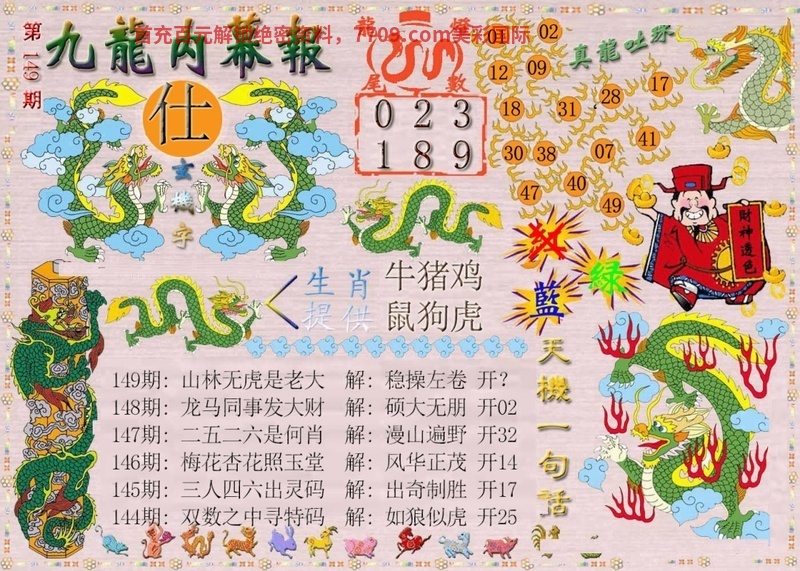 首充百元解密绝密资料，7709.com美彩国际
第149期
九龍内幕报
仕
玄機字
龍燈
尾數
023
189
真龍吐珠
01
02
12
09
18
31
28
17
30
38
07
41
47
40
49
财神透色
红
綠
藍
生肖提供
牛猪鸡
鼠狗虎
天機一句話
149期: 山林无虎是老大 解: 稳操左卷 开?
148期: 龙马同事发大财 解: 硕大无朋 开02
147期: 二五二六是何肖 解: 漫山遍野 开32
146期: 梅花杏花照玉堂 解: 风华正茂 开14
145期: 三人四六出灵码 解: 出奇制胜 开17
144期: 双数之中寻特码 解: 如狼似虎 开25